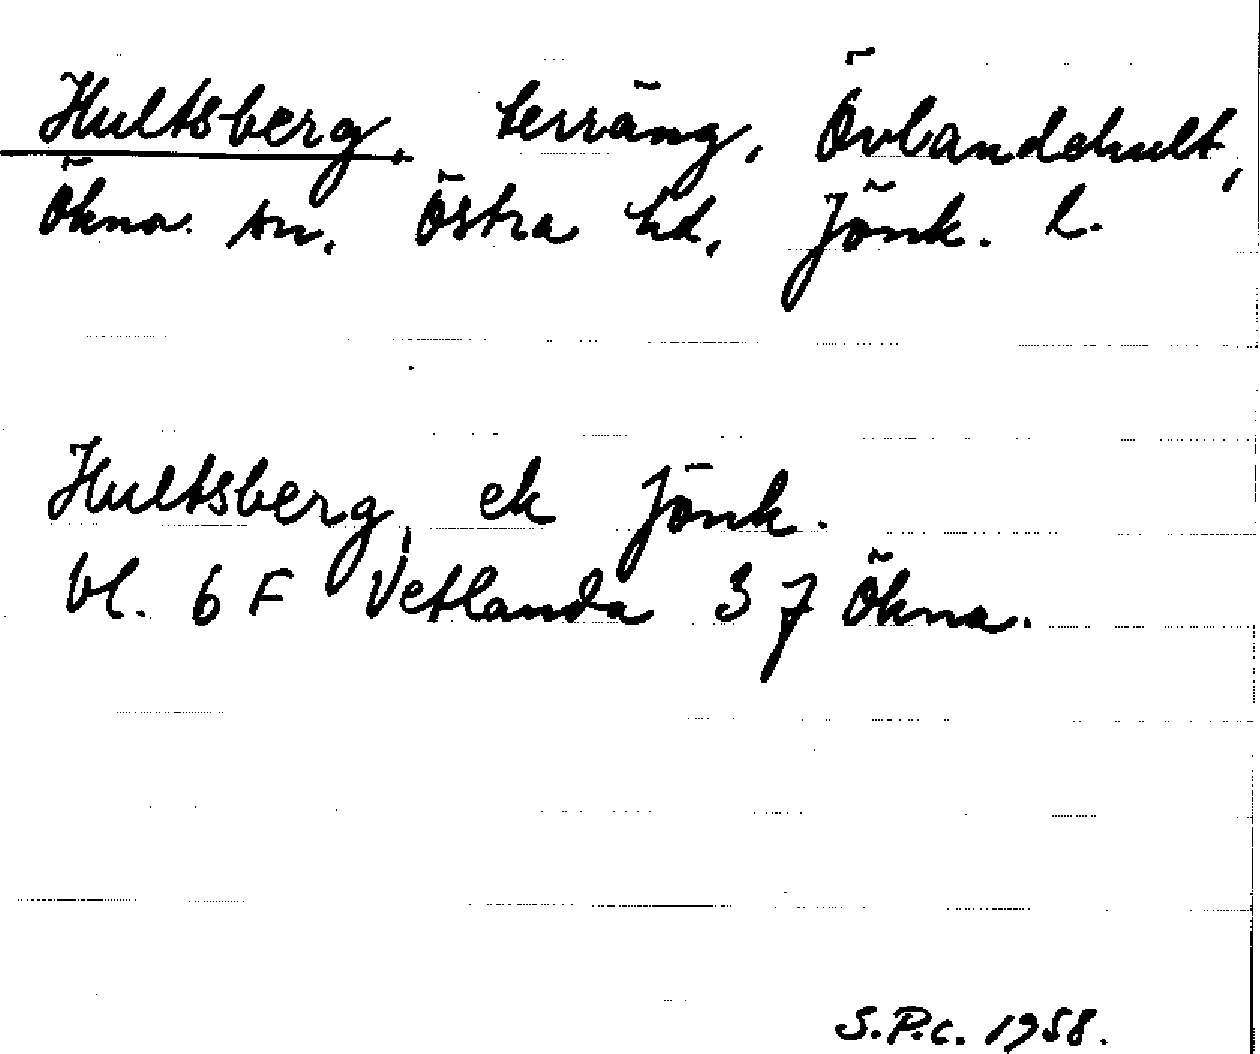 Hultsberg, terräng, Övlandehult,
Ökna sn, Östra hd, Jönk. l.
Hultsberg, ek Jönk.
bl. 6 F Vetlanda 3 j Ökna.
S.P.c. 1958.